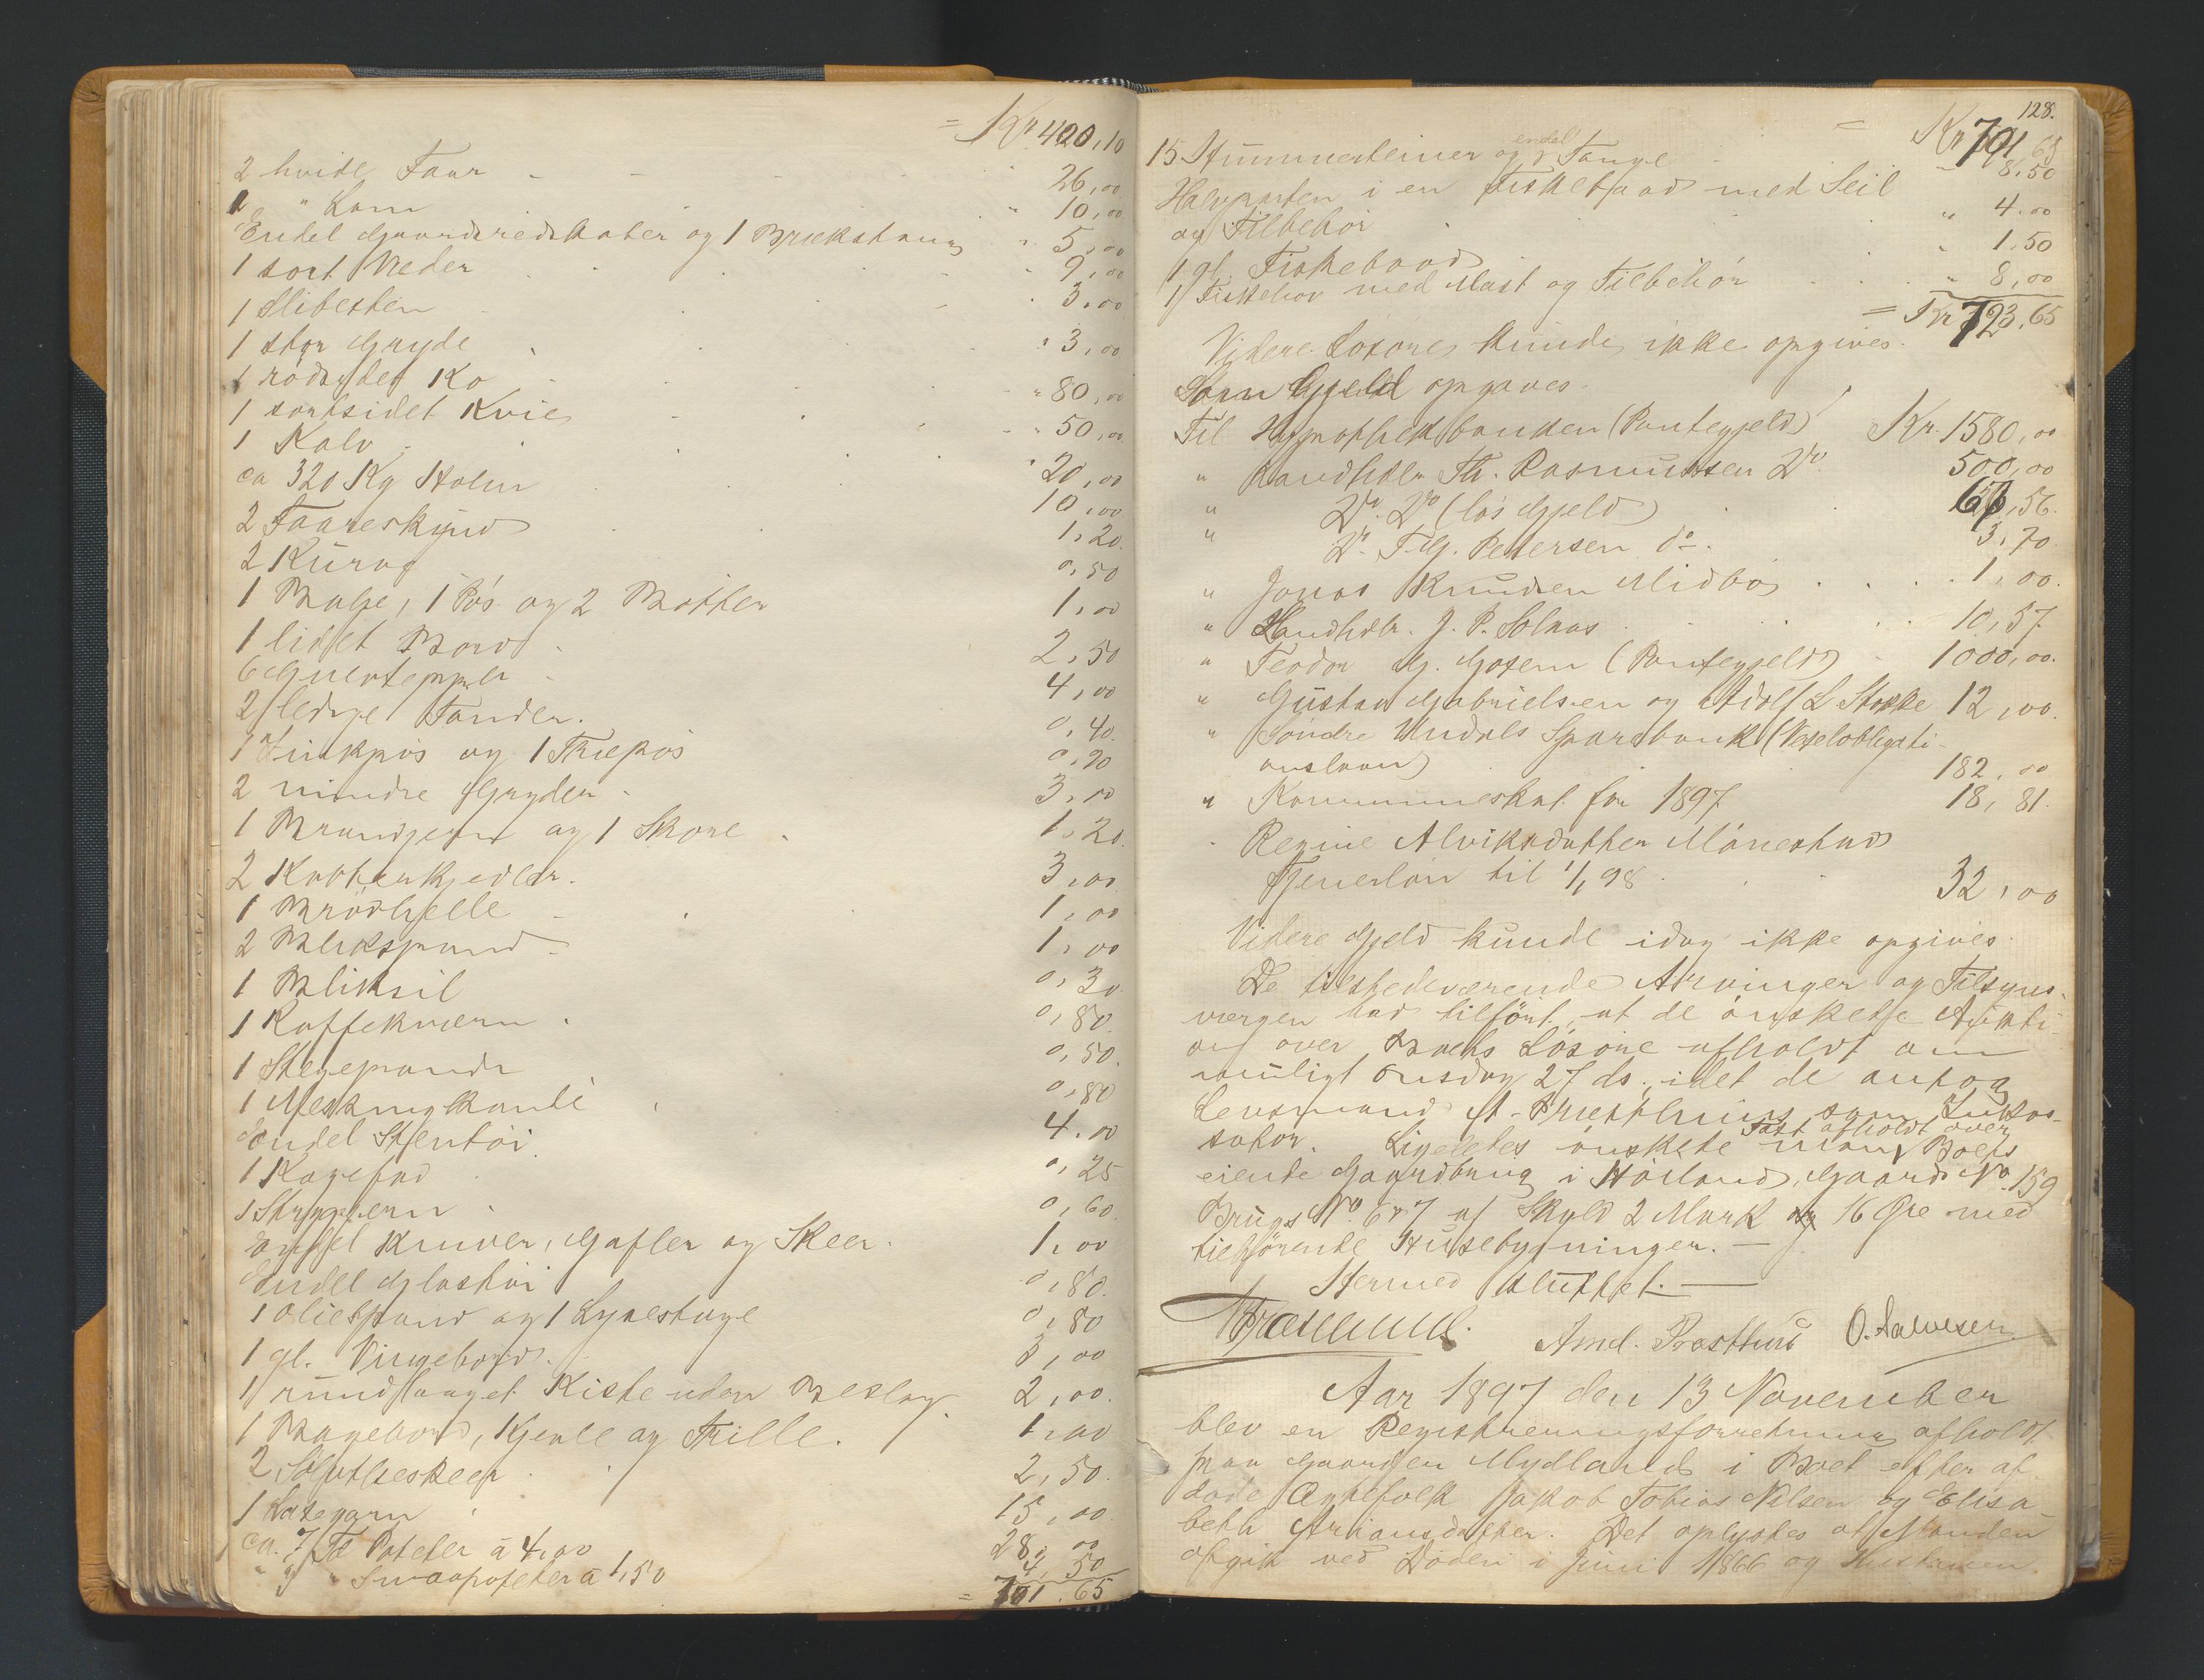 = Kr. 420,10
2 hvide Faar - 26,00
1 " Lam " 10,00
Endel Gaardsredskaber og 1 Brækstang " 5,00
1 sort Veder 9,00
1 Slibesten 3,00
1 stor Gryde " 3,00
1 rødsidet Ko " 80,00
1 sortsidet Kvie " 50,00
1 Kalv " 20,00
ca 320 Kg Halm 10,00
2 Faareskind 1,20
2 Kurve 0,50
1 Balje, 1 Pøs og 2 Bøtter 1,00
1 lidet Bord 2,50
6 4,00
2 ledige Tønder. 0,40
1 Zinkpøs og 1 Træpøs 0,90
2 mindre Gryder 3,00
1 Brandjern og 1 Skore 1,20
2 Kobberkjedler. 3,00
1 Brødhelle 1,00
2 Blikspand 1,00
1 Bliksil 0,30
1 Kaffekværn 0,80
1 Stegepande 0,50
1 Messingkande 0,80
Endel Stentøi 4,00
1 Kagefad 0,25
1 Strygejern 0,60
Endel Kniver, Gafler og Skeer. 1,00
Endel Glastøi 0,80
1 Oliespand og 1 Lysestage 0,80
1 gl. Vingebord. 3,00
1 rundlaaget Kiste uden Beslag 2,00.
1 Bagebord, Kjevle og Trille. 1,00
2 Sølvtheskeer 2,50
1 Laxegarn 15,00
ca. 7 Td Poteter à 4,00 28,00
" 3 " Smaapoteter à 1,50 4,50
= 701.65
128.
= Kr 701,65
15 Hummerteiner og endel Tauge " 8,50
Halvparten i en Fiskebaad med Seil
og Tilbehør " 4.00
1 gl. Fiskebaad " 1.50
1 Fiskebaad med Mast og Tilbehør " 8,00
= Kr 723.65
Videre Løsøre kunde ikke opgives.
Som Gjeld opgaves.
Til Hypothekbanken (Pantegjeld) Kr. 1580,00
" Handlsdr Th. Rasmussen Do 500,00
" Do. Do (løs Gjeld) 56.
" Do. T. G. Pedersen do. 3,70
" Jonas Knudsen Midbø 1,00.
" Handlsdr. J. P. Solaas 10,57
" Teodor G. Gosen (Pantegjeld) 1000,00.
" Gustav Gabrielsen og Adolf L Stokke 12,00.
" Søndre Undals Sparebank (Vexelobligati-
onslaan) 182,00
" Kommuneskat for 1897 18,81.
" Regine Alviksdatter Mønestad
Tjenerløn til 1/1 98 32,00
Videre Gjeld kunde idag ikke opgives.
De tilstedeværende Arvinger og Tilsyns-
værgen bad tilført, at de ønskede Aukti-
on over Boets Løsøre afholdt om
muligt Onsdag 27 ds., idet de antog
Lensmand A. Præsthuus som Inkas-
sator. Ligeledes ønskede man Taxt afholdt over Boets
eiende Gaardbrug i Høiland, Gaards No. 159
Brugs No. 6 & 7 af Skyld 2 Mark og 16 Øre med
tilhørende Husebygninger. —
Hermed sluttet. —
Amd. Præsthuus O. Salvesen
Aar 1897 den 13 November
blev en Registreringsforretning afholdt
paa Gaarden Mydland i Boet efter af-
døde Ægtefolk Jakob Tobias Nilsen og Elisa-
beth Ariansdatter. Det oplystes at Manden
afgik ved Døden i Juni 1866 og Hustruen.